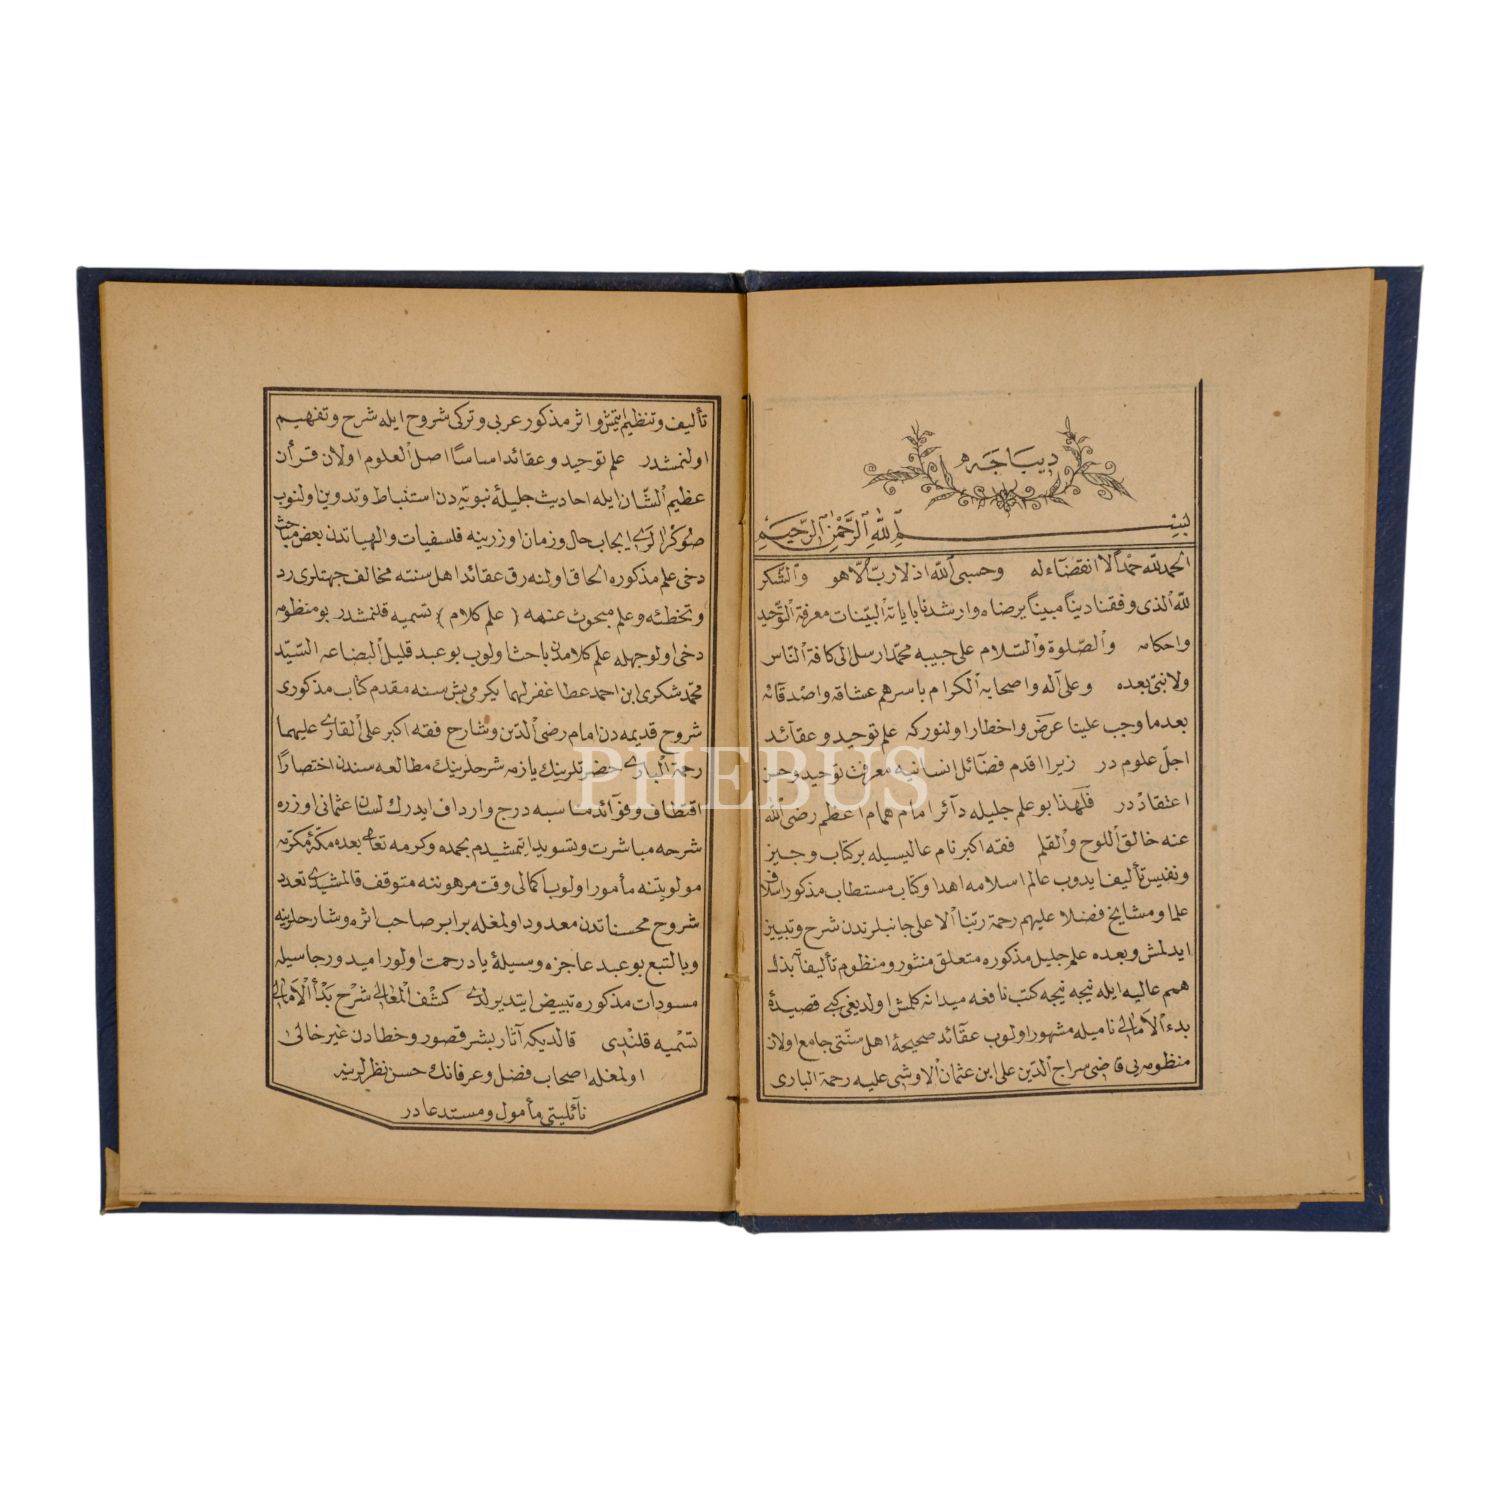 ديباجه
بسم الله الرحمن الرحيم
الحمد لله حمداً لا انقضاء له وحسبى الله اذ لا رب الا هو والشكر
لله الذى وفقنا ديناً مبيناً يرضاه وارشدنا باياته البينات معرفة التوحيد
واحكامه والصلوة والسلام على حبيبه محمد ارسل الى كافة الناس
ولا نبى بعده وعلى آله واصحابه الكرام باسرهم عشاقه واصدقائه
بعدما وجب علينا عرض واخطار اولنور كه علم توحيد وعقائد
اجل علوم در زيرا اقدم فضائل انسانيه معرفت توحيد وحسن
اعتقاد در فلهذا بو علم جليله دائر امام همام اعظم رضى الله
عنه خالق اللوح والقلم فقه اكبر نام عاليسيله بر كتاب وجيز
ونفيس تأليف ايدوب عالم اسلامه اهدا وكتاب مستطاب مذكور اسلاف
علما ومشايخ فضلا عليهم رحمة ربنا الاعلى جانبلرندن شرح وتبييز
ايدلمش وبعده علم جليل مذكوره متعلق منثور ومنظوم تأليفاً بذل
همم عاليه ايله نيجه نيجه كتب نافعه ميدانه كلمش اولديغى كبى قصيدهٔ
بدء الامالى ناميله مشهور اولوب عقائد صحيحهٔ اهل سنتى جامع اولان
منظومه يى قاضى سراج الدين على ابن عثمان الاوشى عليه رحمة البارى
تأليف وتنظيم ايتمش و اثر مذكور عربى وتركى شروح ايله شرح وتفهيم
اولنمشدر علم توحيد وعقائد اساساً اصل العلوم اولان قرأن
عظيم الشان ايله احاديث جليلهٔ نبويه دن استنباط وتدوين اولنوب
صوكرالرى ايجاب حال وزمان اوزرينه فلسفيات والهياتدن بعض مباحث
دخى علم مذكوره الحاق اولنه رق عقائد اهل سنته مخالف جهتلرى رد
وتخطئه وعلم مبحوث عنهه (علم كلام) تسميه قلنمشدر بو منظومه
دخى اولوجهله علم كلامدن باحث اولوب بو عبد قليل البضاعه السيد
محمد شكرى ابن احمد عطا غفر لهما يكرمى بش سنه مقدم كتاب مذكورى
شروح قديمه دن امام رضى الدين وشارح فقه اكبر على القارى عليهما
رحمة البارى حضرتلرينك يازمه شرحلرينك مطالعه سندن اختصاراً
اقتطاف وفوائد مناسبه درج وارداف ايدرك لسان عثمانى اوزره
شرحه مباشرت وتسويد ايتمشيدم بحمده وكرمه تعالى بعده مكۀ مكرمه
مولويتنه مأمور اولوب اكمالى وقت مرهوننه متوقف قالمشيدى تعدد
شروح محسناتدن معدود اولمغله برابر صاحب اثره وشارحلرينه
وبالتبع بو عبد عاجزه وسيلهٔ ياد رحمت اولور اميد ورجاسيله
مسودات مذكوره تبييض ايتديرلدى كشف المعالى شرح بدأ الامالى
تسميه قلندى قالديكه آثار بشر قصور وخطادن غير خالى
اولمغله اصحاب فضل وعرفانك حسن نظرلرينه
نائليتى مأمول ومستدعادر
PHEBUS